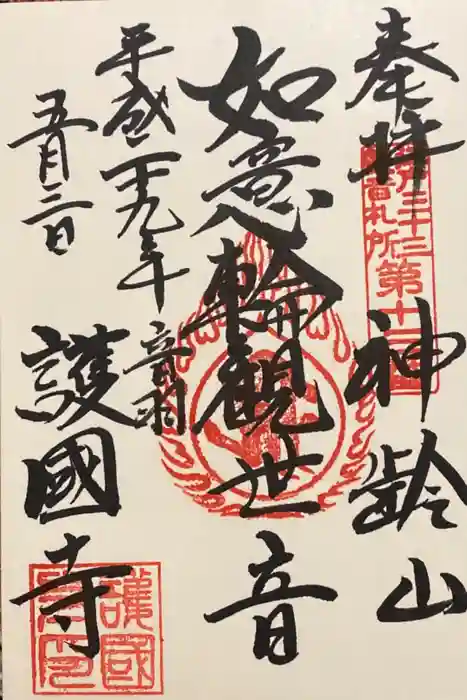 奉拝
神齢山
江戸三十三
観音札所
第十
如意輪観世音
平成二十九年
五月三日
音羽
護國寺
護國
寺印